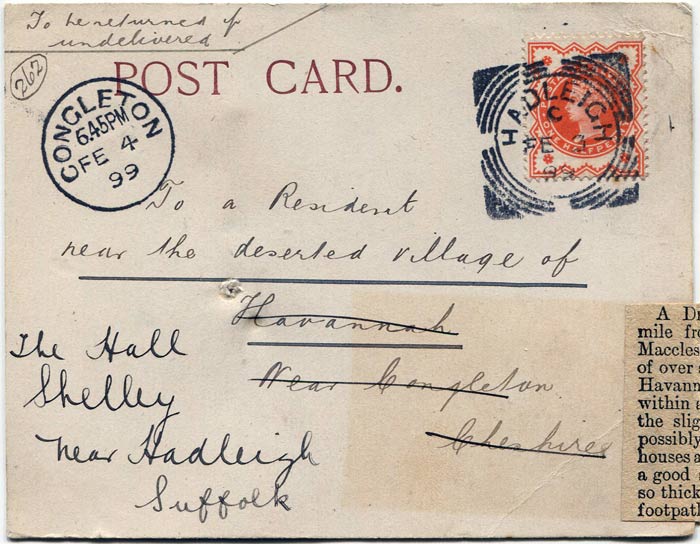 To be returned if
undelivered.
262
POST CARD.
CONGLETON
6.45PM
FE 4
99
HADLEIGH
C
FE 4
99
HALFPE
To a Resident
near the deserted village of
Havannah
Near Congleton
Cheshire
The Hall
Shelley
near Hadleigh
Suffolk
A D
mile fr
Maccles
of over
Havann
within a
the slig
possibly
houses a
a good
so thick
footpat